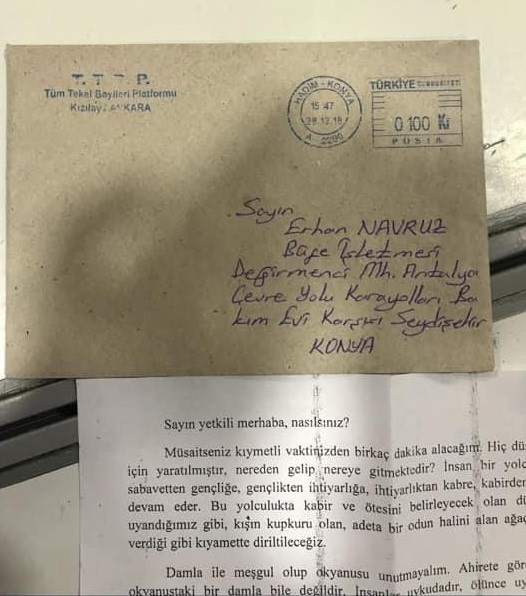 T. T. P.
Tüm Tekel Bayileri Platformu
Kızılay / ANKARA
HADIM - KONYA
15 47
28.12.18
A 2290
TÜRKİYE CUMHURİYETİ
0 100 Kr
POSTA
Sayın
Erhan NAVRUZ
Büfe İşletmesi
Değirmenci Mh. Antalya
Çevre Yolu Karayolları Ba
kım Evi Karşısı Seydişehir
KONYA
Sayın yetkili merhaba, nasılsınız?
Müsaitseniz kıymetli vaktinizden birkaç dakika alacağım. Hiç dü
için yaratılmıştır, nereden gelip nereye gitmektedir? İnsan bir yolc
sabavetten gençliğe, gençlikten ihtiyarlığa, ihtiyarlıktan kabre, kabirden
devam eder. Bu yolculukta kabir ve ötesini belirleyecek olan dü
uyandığımız gibi, kışın kupkuru olan, adeta bir odun halini alan ağaç
verdiği gibi kıyamette diriltileceğiz.
Damla ile meşgul olup okyanusu unutmayalım. Ahirete gör
okyanustaki bir damla bile değildir. İnsanlar uykudadır, ölünce uy